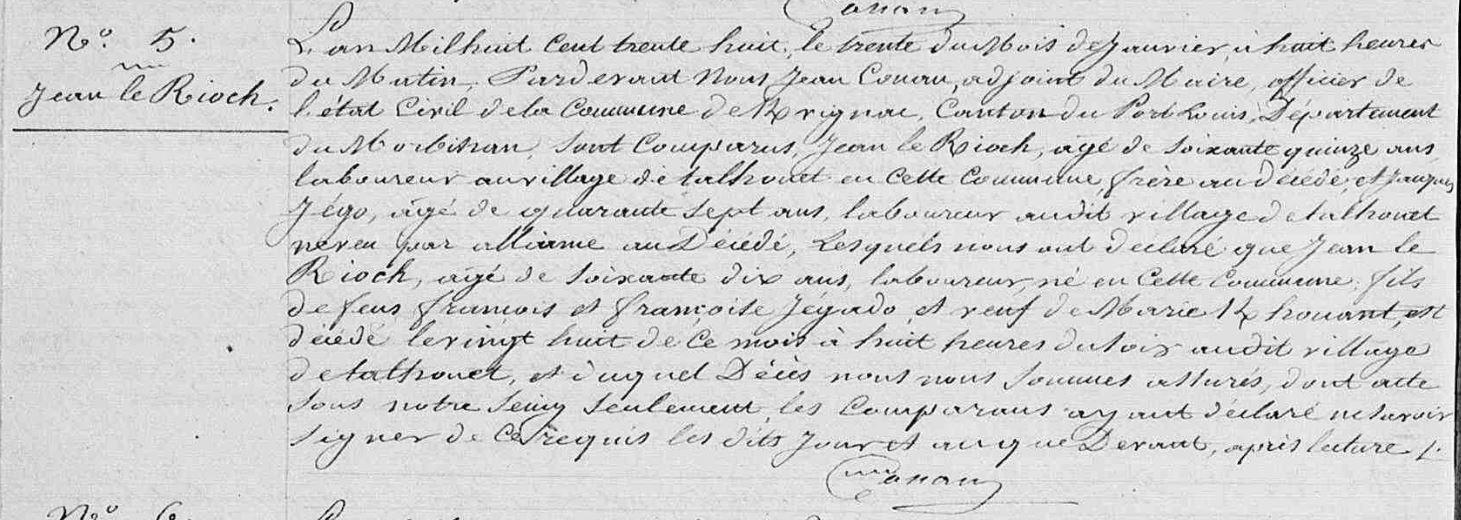 Conan
N.º 5.
Jean le Rioch.
L'an Mil huit Cent trente huit, le trente du Mois de Janvier, à huit heures
du Matin, Pardevant Nous Jean Conan, adjoint du Maire, officier de
l'état Civil de la Commune de Kvignac, Canton du Port Louis, Département
du Morbihan, sont Comparus, Jean le Rioch, agé de soixante quinze ans,
laboureur au village de talhouet en Cette Commune, frère au décédé, et Jacques
Jégo, âgé de quarante sept ans, laboureur audit village de talhouet
neveu par alliance au Décédé, Lesquels nous ont déclaré que Jean le
Rioch, agé de soixante dix ans, laboureur, né en Cette Commune, fils
de feus françois et françoise Jégado, et veuf de Marie K houant, est
décédé le vingt huit de Ce mois à huit heures du soir audit village
de talhouet, et duquel Décès nous nous sommes assurés, dont acte
sous notre seing seulement, les Comparans ayant déclaré ne savoir
signer de Ce requis les dits Jour et an que Devant, après lecture /.
Conan
N.º 6.